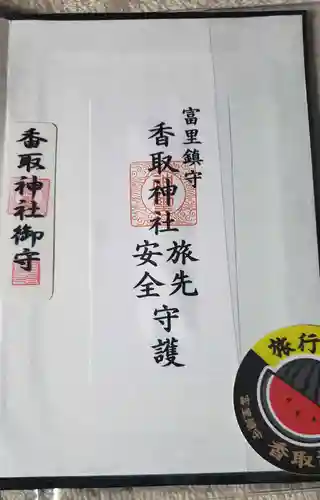 富里鎮守
香取神社
旅先
安全
守護
香取神社御守
旅行
富里鎮守
香取